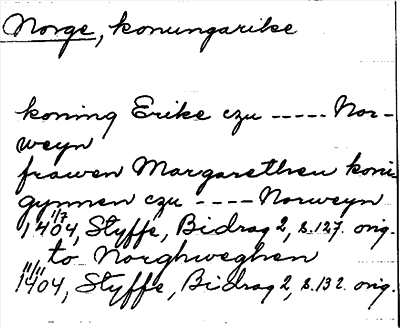 Norge, konungarike
koning Erike czu ----- Nor-
weyn
frawen Margarethen koni-
gynnen czu ---- Norweyn
1/7
1404, Styffe, Bidrag 2, s.127. orig.
to Norghweghen
11/11
1404, Styffe, Bidrag 2, s.132. orig.